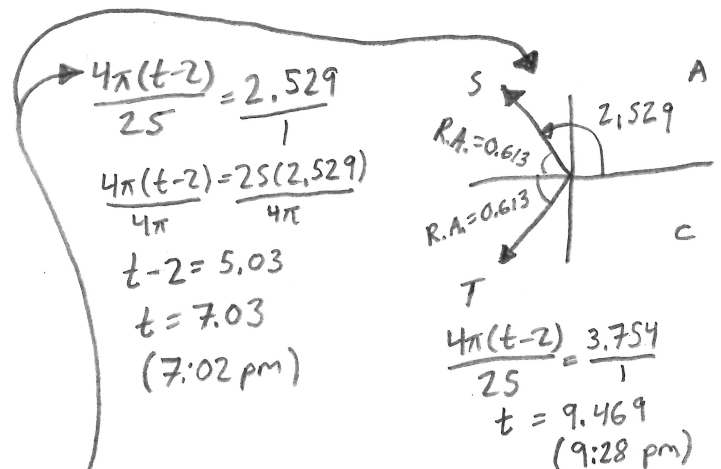 4π(t-2)/25 = 2.529/1
4π(t-2)/4π = 25(2.529)/4π
t-2 = 5.03
t = 7.03
(7:02 pm)
S
A
2.529
R.A.=0.613
R.A.=0.613
T
C
4π(t-2)/25 = 3.754/1
t = 9.469
(9:28 pm)